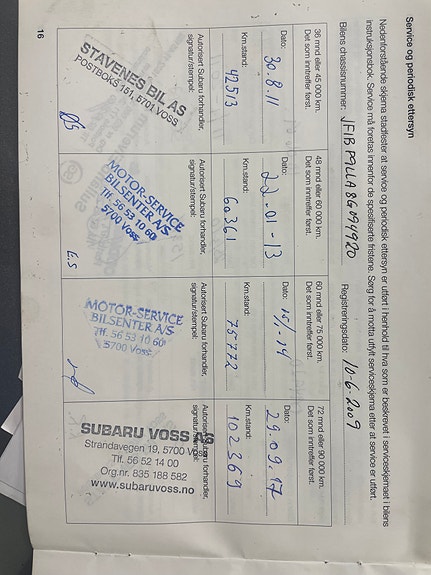 Service og periodisk ettersyn
Nedenforstående skjema stadfester at service og periodisk ettersyn er utført i henhold til hva som er beskrevet i serviceskjemaet i bilens
instruksjonsbok. Service må foretas innenfor de spesifiserte fristene. Sørg for å motta utfylt serviceskjema etter at service er utført.
Bilens chassisnummer: JF1BP9LLA8G094920 Registreringsdato: 10-6-2009
36 mnd eller 45 000 km.
Det som inntreffer først.
Dato: 30.8.11
Km.stand: 42513
Autorisert Subaru forhandler,
signatur/stempel:
STAVENES BIL AS
POSTBOKS 151, 5701 VOSS
48 mnd eller 60 000 km.
Det som inntreffer først.
Dato: 22-01-13
Km.stand: 60361
Autorisert Subaru forhandler,
signatur/stempel:
MOTOR-SERVICE
BILSENTER A/S
Tlf. 56 53 10 60
5700 Voss
E.S
60 mnd eller 75 000 km.
Det som inntreffer først.
Dato: 15/1-14
Km.stand: 75772
Autorisert Subaru forhandler,
signatur/stempel:
MOTOR-SERVICE
BILSENTER A/S
Tlf. 56 53 10 60
5700 Voss
72 mnd eller 90 000 km.
Det som inntreffer først.
Dato: 29.09.17
Km.stand: 102369
Autorisert Subaru forhandler,
signatur/stempel:
SUBARU VOSS AS
Strandavegen 19, 5700 Voss
Tlf. 56 52 14 00
Org.nr. 835 188 582
www.subaruvoss.no
16